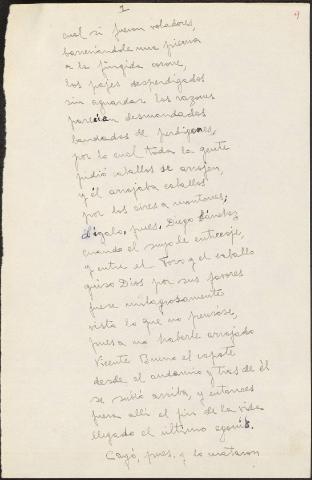 1
9
cual si fueran voladores,
barrenándole una pierna
a la fingida corone,
los pajes desperdigados
sin aguardar las razones
parecían desmandados
bandadas de perdigones,
por lo cual toda la gente
pidió caballos se arrojen,
y él arrojaba caballos
por los aires a montones;
dígalo, pues, Diego Sánchez
cuando el suyo le entecoje,
y entre el Toro y el caballo
quiso Dios por sus favores
fuese milagrosamente
visto lo que no pensóse,
pues a no haberle arrojado
Vicente Bueno el capote
desde el andamio y tras de él
se subió arriba, y entonces
fuera allí el fin de la vida
llegado el último
Cayó, pues, y lo mataron